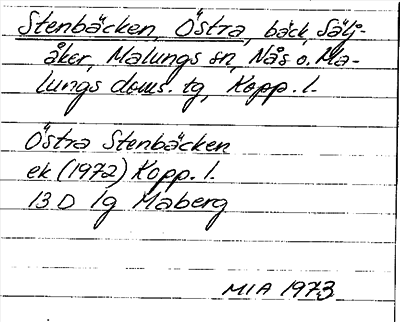 Stenbäcken, Östra, bäck, Sälj-
åker, Malungs sn, Nås o. Ma-
lungs doms. tg, Kopp. l.
Östra Stenbäcken
ek (1972) Kopp. l.
13 D 1g Maberg
MIA 1973